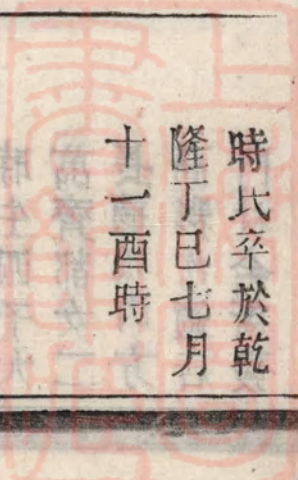 時氏卒於乾
隆丁巳七月
十一酉時